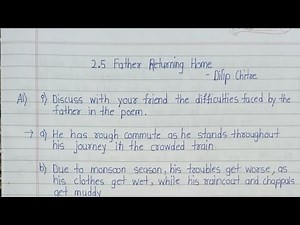 2.5 Father Returning Home
- Dilip Chitre
A1) i) Discuss with your friend the difficulties faced by the
father in the poem.
→ a) He has rough commute as he stands throughout
his journey in the crowded train.
b) Due to monsoon season, his troubles get worse, as
his clothes get wet, while his raincoat and chappals
get muddy